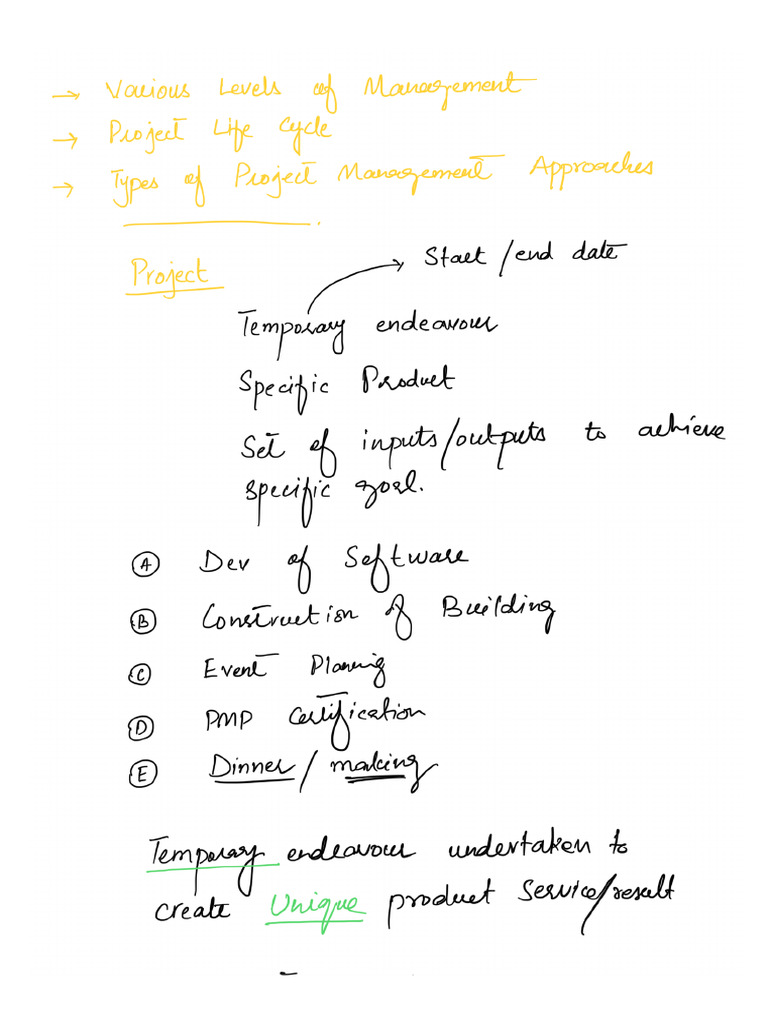 → Various Levels of Management
→ Project Life Cycle
→ Types of Project Management Approaches
Project
Start / end date
Temporary endeavour
Specific Product
Set of inputs/outputs to achieve
specific goal.
A Dev of Software
B Construction of Building
C Event Planning
D PMP Certification
E Dinner / making
Temporary endeavour undertaken to
create Unique product service/result